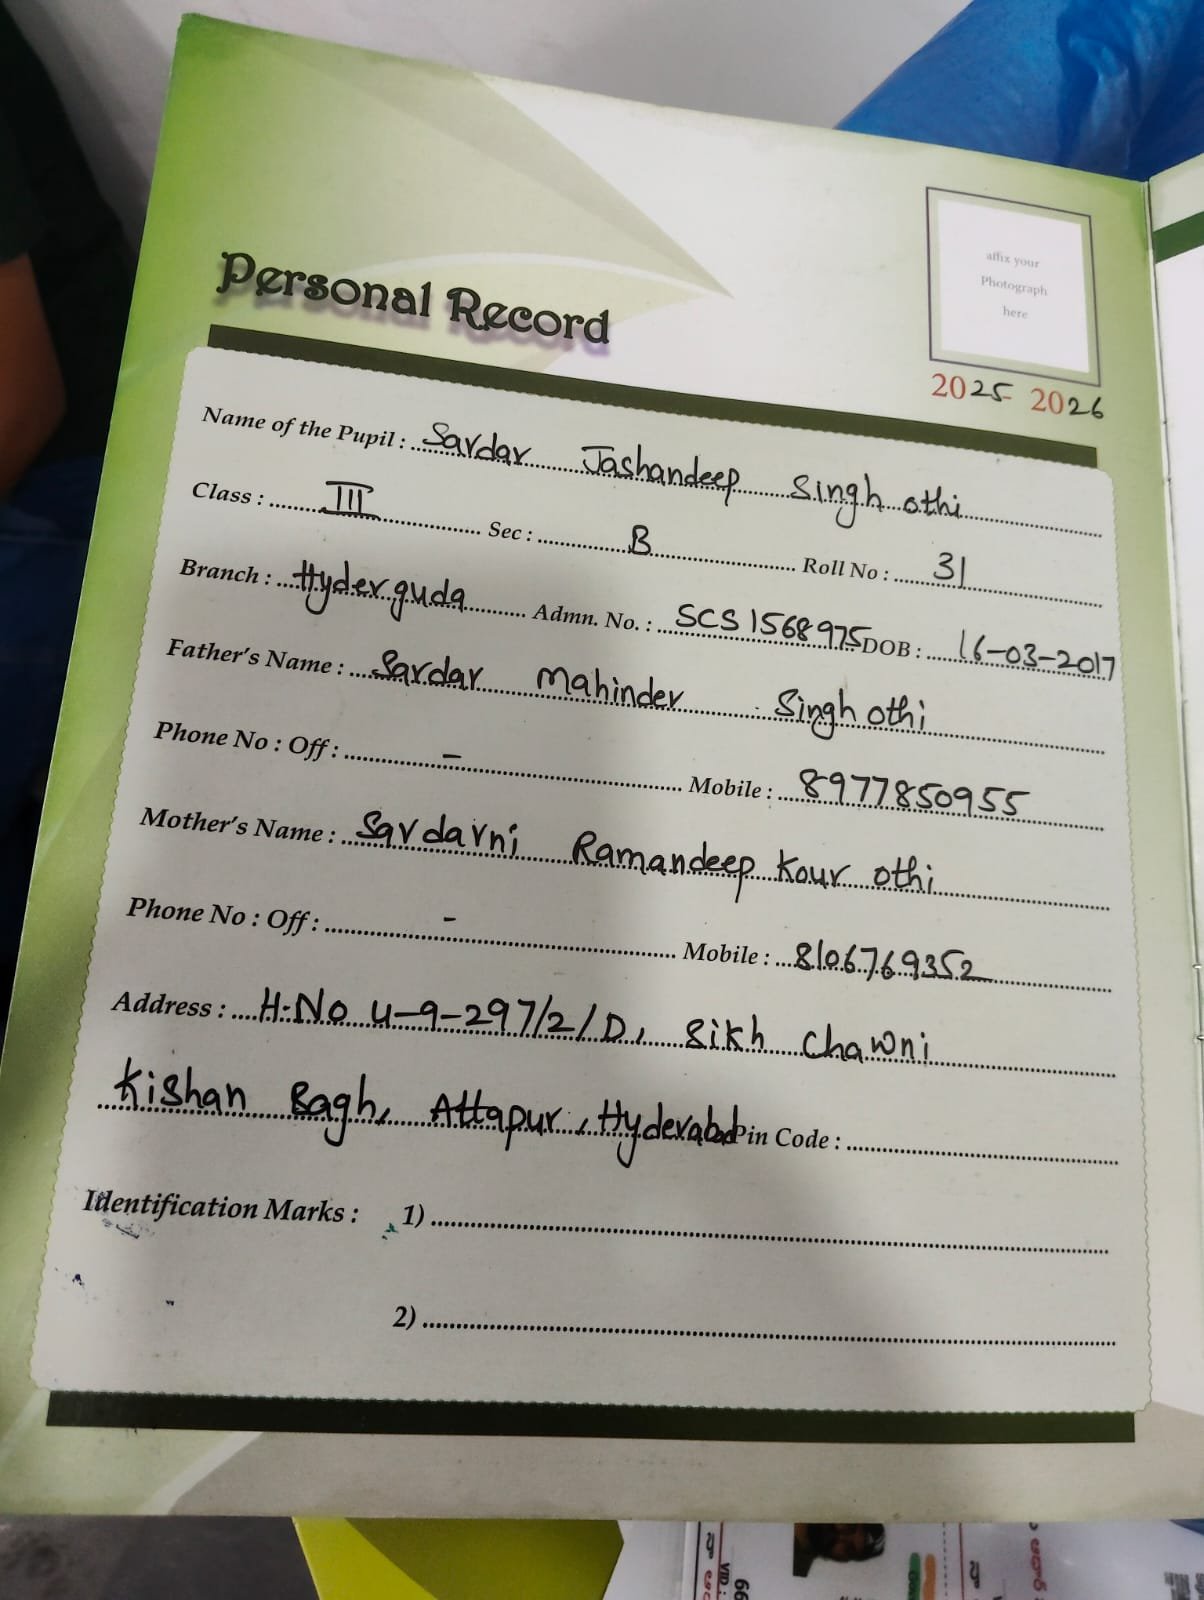 affix your
Photograph
here
Personal Record
2025-2026
Name of the Pupil : Sardar Jashandeep Singh othi
Class : III Sec : B Roll No : 31
Branch : Hyderguda Admn. No. : SCS1568975 DOB : 16-03-2017
Father's Name : Sardar Mahinder Singh othi
Phone No : Off : - Mobile : 8977850955
Mother's Name : Sardarni Ramandeep Kour othi
Phone No : Off : - Mobile : 8106769352
Address : H.No 4-9-297/2/D, Sikh Chawni
Kishan Bagh, Attapur, Hyderabad Pin Code :
Identification Marks : 1)
2)
VID :
66